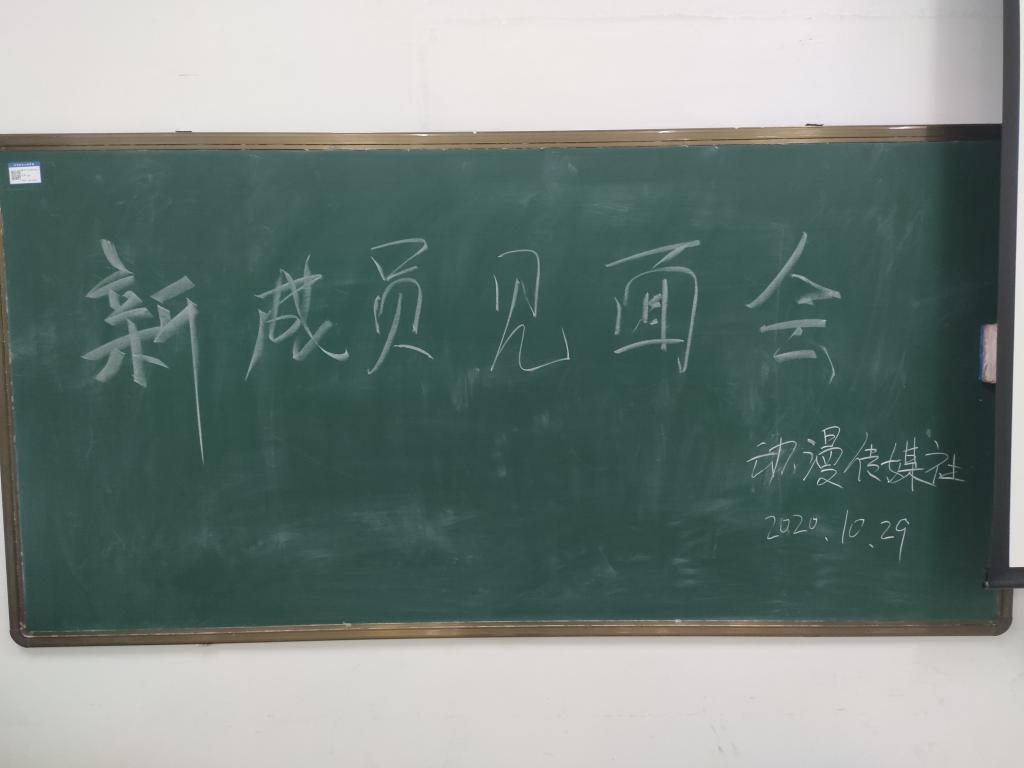 新成员见面会
动漫传媒社
2020.10.29